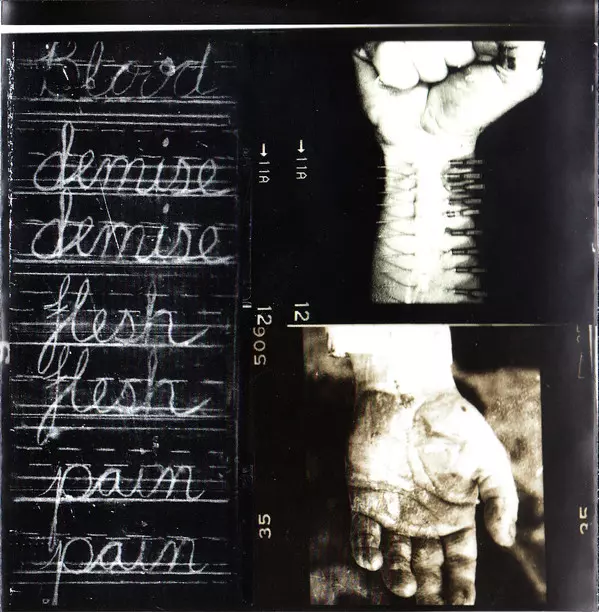 Blood
demise
demise
flesh
flesh
pain
pain
→11A
→11A
12
12
506
35
35